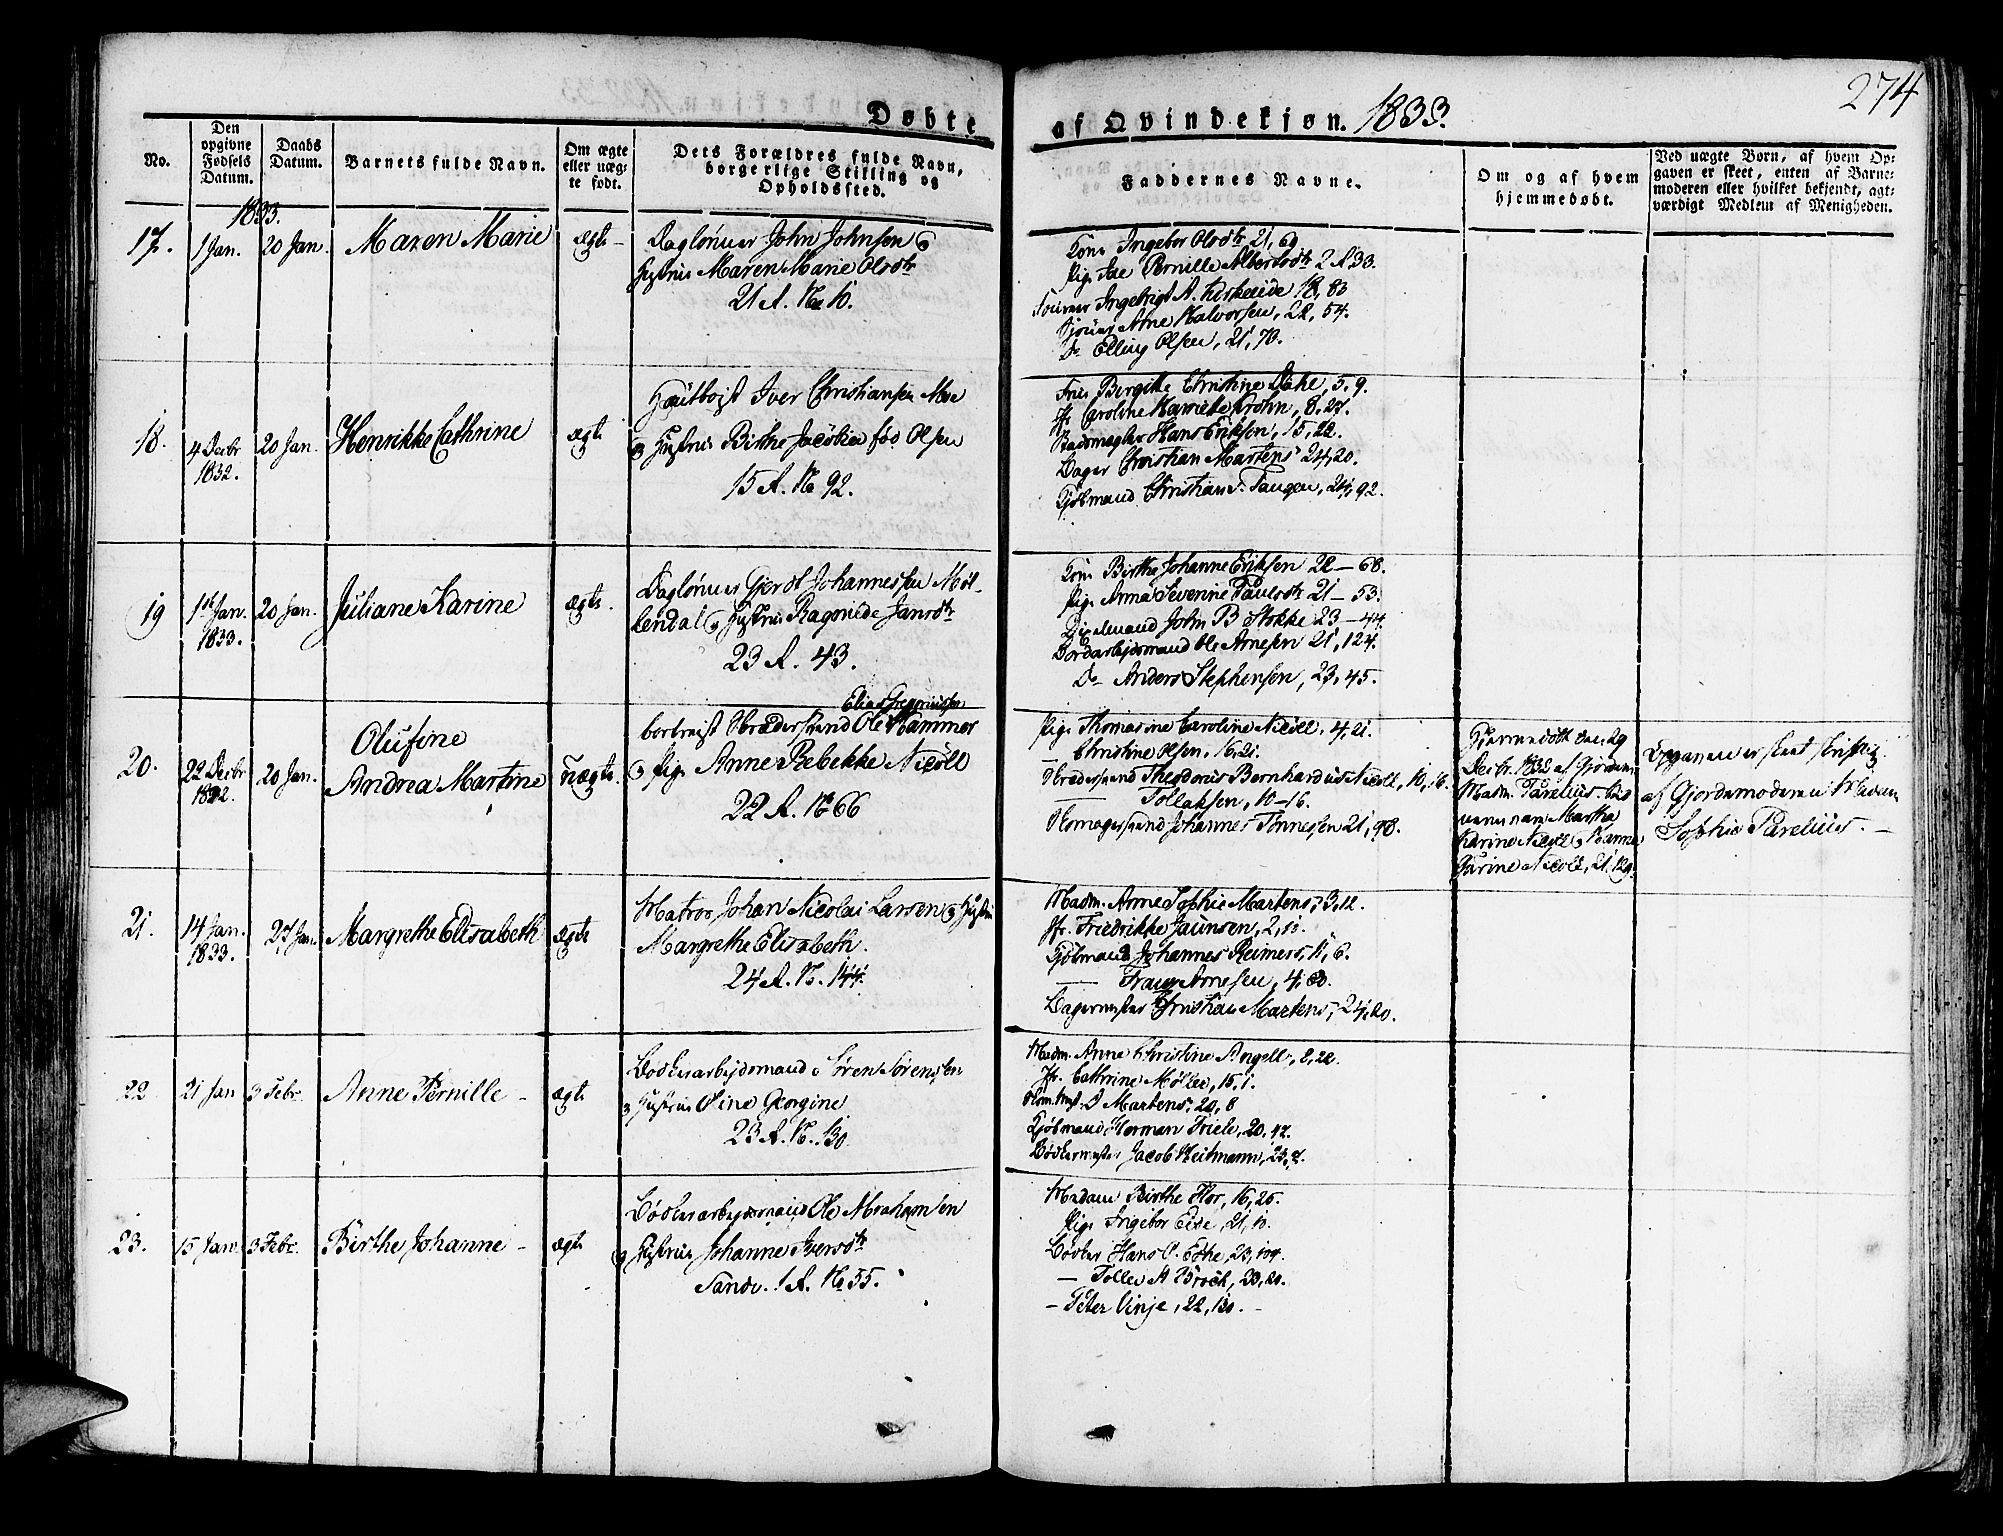 274
Døbte af Qvindekjøn. 1833.
No.
Den opgivne Fødsels Datum.
Daabs Datum.
Barnets fulde Navn.
Om ægte eller uægte født.
Dets Forældres fulde Navn, borgerlige Stilling og Opholdssted.
Faddernes Navne.
Om og af hvem hjemmedøbt.
Ved uægte Børn, af hvem Opgaven er skeet, enten af Barnemoderen eller hvilket bekjendt, agtværdigt Medlem af Menigheden.
1833.
17.
1 Jan.
20 Jan.
Maren Marie
ægte
Daglønner John Johnsen
Hustrue Maren Marie Olsdtr
21 A. No 10.
Kone Ingebor Olsdtr 21, 69
Pige Pernille Albertsdtr 2 A 33.
Ingebrigt A. 18, 83
Arne Halvorsen, 22, 54.
Do Elling Olsen, 21, 70.
18.
4 Decbr 1832.
20 Jan.
Henrikke Cathrine
ægte
Hautboist Iver Christiansen Moe
Hustrue Birthe Jacobia fød Olsen
15 A. No 92.
Frue Bergitte Christine Dahe, 5, 9.
Jfr Caroline Harriete Krohn, 8, 27.
Hans Eriksen, 15, 22.
Bager Christian Martens 24, 20.
Kjøbmand Christian F. Tangen, 24, 92.
19
1st Jan. 1833.
20 Jan.
Juliane Karine
ægte.
Daglønner Gjert Johannessen Møl-
lendal Hustrue Ragnilde Jansdtr
23 A. 43.
Kone Birthe Johanne Eriksen 22 – 68.
Pige Anna Severine Paulsdtr 21 – 53.
John B Stokke 23 – 44
Bordarbejdsmand Ole Arnesen 21, 124.
Do Anders Stephensen, 23, 45.
20.
22 Decbr 1832
20 Jan.
Olufine
Andrea Martine
uægte.
Elias Gregoriussen
bortreist Ole Hammer
Pige Anne Rebekke Nicoll
22 A. No 66
Pige Thomasine Caroline Nicoll, 4, 21.
– Christine Olsen, 16, 21.
Theodorus Bernhardus Nicoll, 10, 16.
– Tollaksen, 10 – 16.
Johannes Tønnessen 21, 98.
Hjemmedøbt den 29
Decbr. 1832 af Gjordem.
Madm. Parelius.
Martha
Karine Nicoll Hanne
Karine Nicoll, 21, 129.
Opgaven er skeet skriftlig
af Gjordemoderen Madam
Sophie Parelius. –
21.
14 Jan. 1833.
27 Jan.
Margrethe Elisabeth
ægte
Matros Johan Nicolai Larsen Hustru
Margrethe Elisabeth.
24 A. N. 144.
Madm. Anne Sophie Martens, 3, 12.
Jfr. Friedrikke Jaunsen, 2, 10.
Kjøbmand Johannes Reimers, 11, 6.
– Arnesen, 4,
Bagermester Christian Martens, 24, 20.
22
21 Jan
3 Febr.
Anne Pernille –
ægte
Bødkerarbejdsmand Søren Sørensen
Hustrue Oline Georgine
23 A. N. 130
Madm. Anne Christine Angell, 8, 22.
Jfr. Cathrine Møller, 15, 1.
Martens, 20, 8
Kjøbmand Herman Friele, 20, 42.
Bødkermester Jacob Heitmann, 23, 2.
23.
15 Jan.
3 Febr.
Birthe Johanne –
ægte
Bødkerarbejdsmand Ole Abrahamsen
Hustrue Johanne Iversdtr
Sandv. 1 A. No 55.
Madam Birthe Flor, 16, 26.
Pige Ingebor Eide, 21, 10.
Bødker Hans O. Eske, 23, 104.
– Tollev A Broch, 23, 20.
– Peter Vinje, 22, 130. –